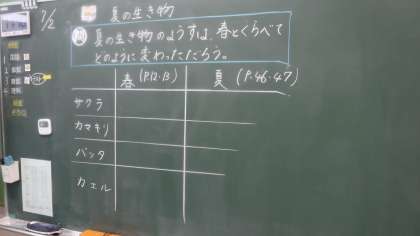 7/2
夏の生き物
問 夏の生き物のようすは、春とくらべて
どのように変わっただろう。
春(P.12-13) 夏(P.46-47)
サクラ
カマキリ
バッタ
カエル